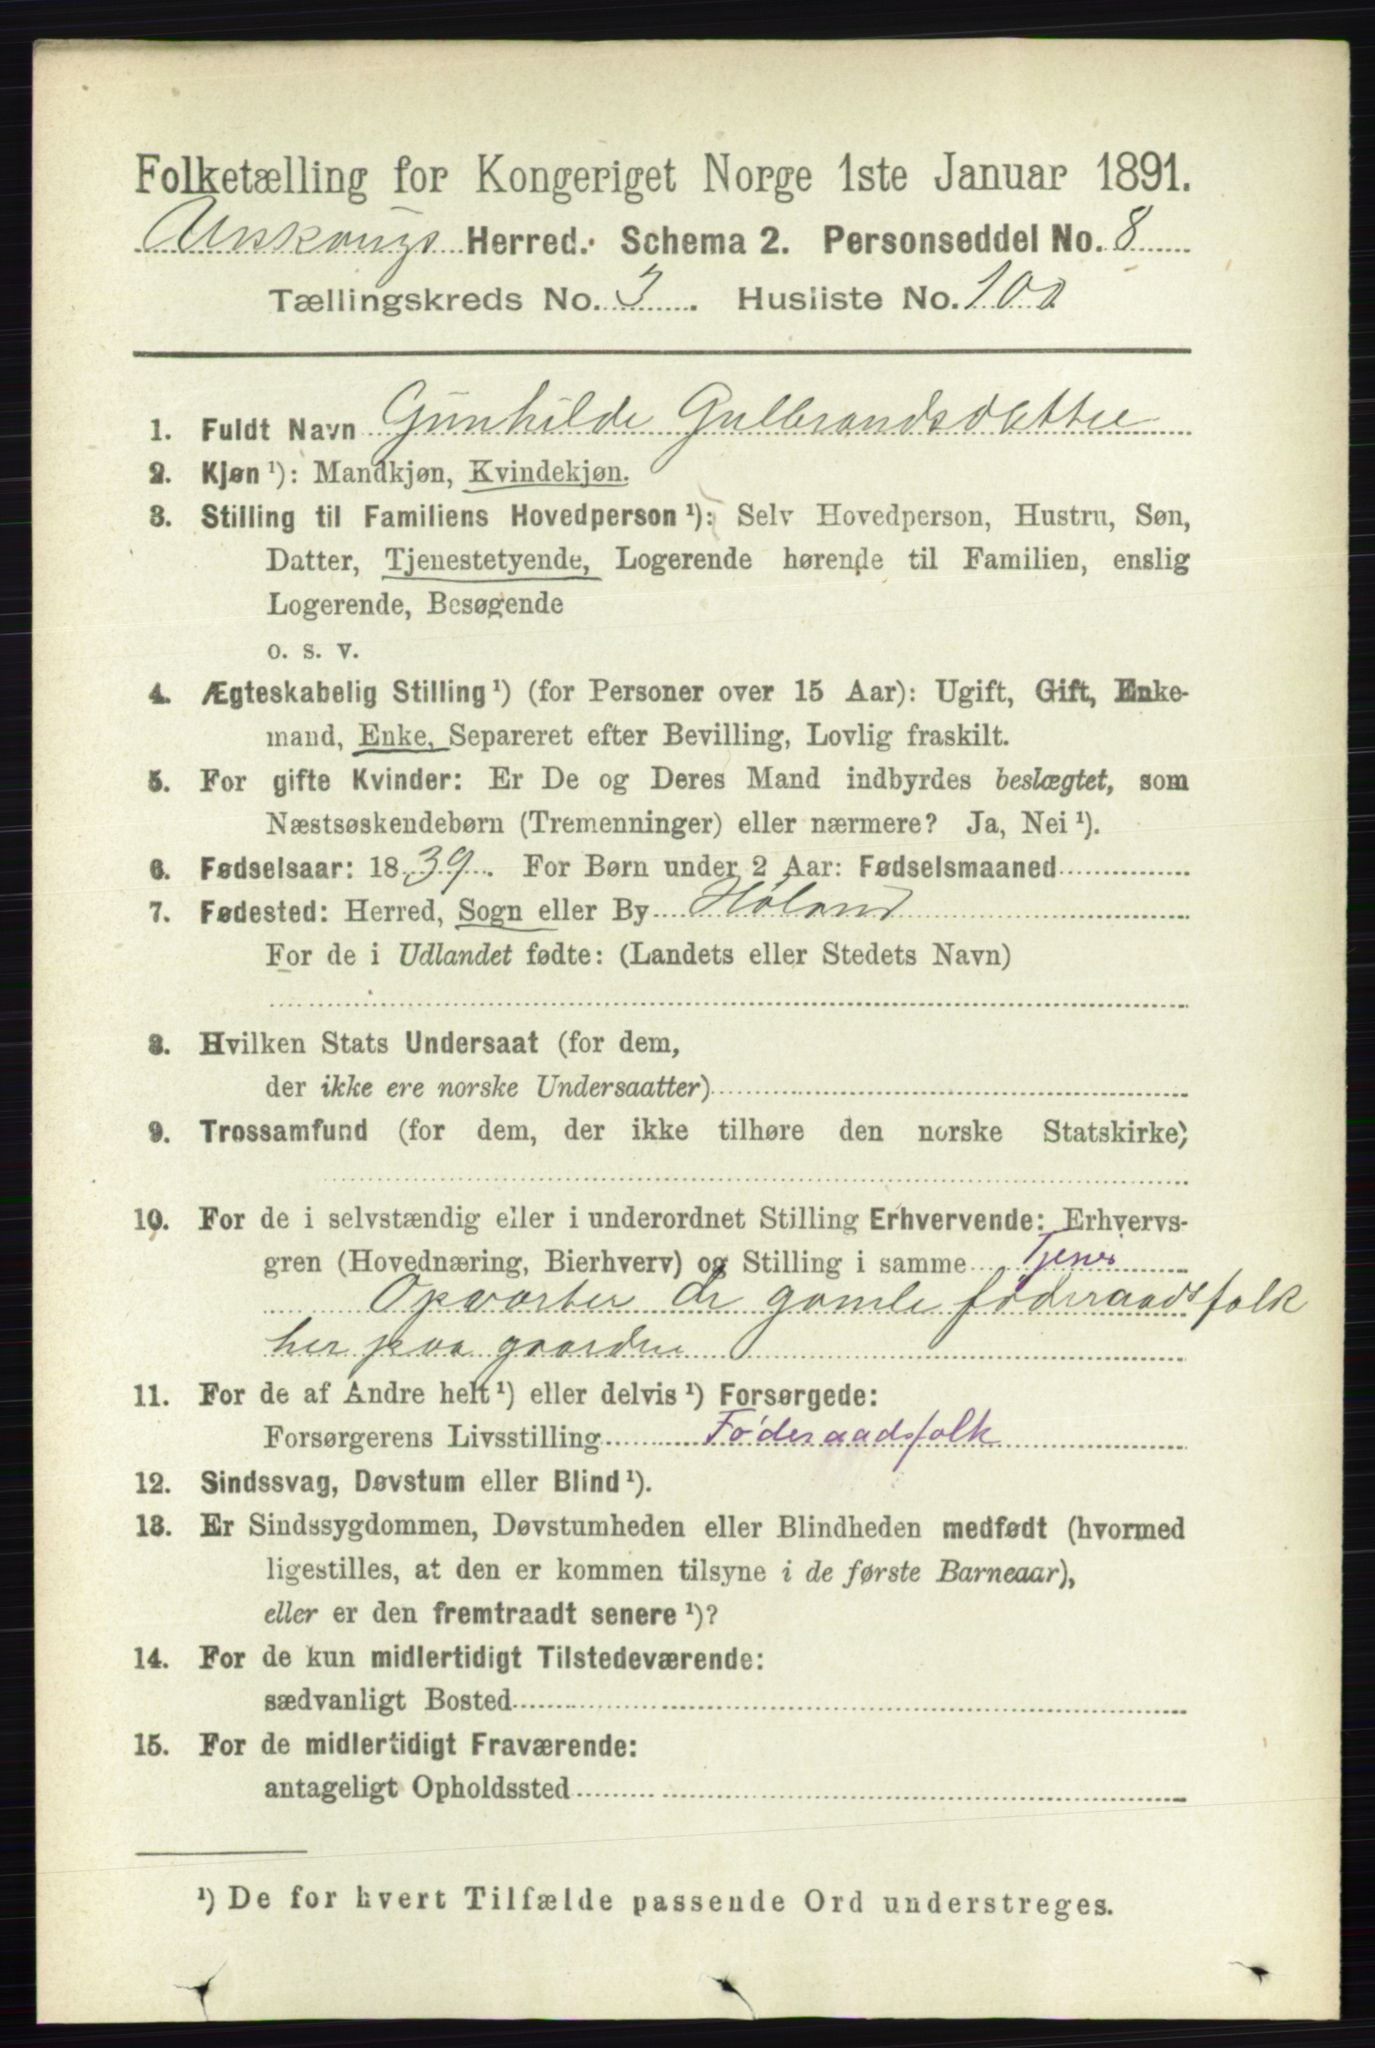 Folketælling for Kongeriget Norge 1ste Januar 1891.
Urskougs Herred. Schema 2. Personseddel No. 8
Tællingskreds No. 3. Husliste No. 100
1. Fuldt Navn Gunhilde Gulbrandsdatter
2. Kjøn ¹): Mandkjøn, Kvindekjøn.
3. Stilling til Familiens Hovedperson ¹): Selv Hovedperson, Hustru, Søn,
Datter, Tjenestetyende, Logerende hørende til Familien, enslig
Logerende, Besøgende
o. s. v.
4. Ægteskabelig Stilling ¹) (for Personer over 15 Aar): Ugift, Gift, Enke-
mand, Enke, Separeret efter Bevilling, Lovlig fraskilt.
5. For gifte Kvinder: Er De og Deres Mand indbyrdes beslægtet, som
Næstsøskendebørn (Tremenninger) eller nærmere? Ja, Nei ¹).
6. Fødselsaar: 1839. For Børn under 2 Aar: Fødselsmaaned
7. Fødested: Herred, Sogn eller By Høland
For de i Udlandet fødte: (Landets eller Stedets Navn)
8. Hvilken Stats Undersaat (for dem,
der ikke ere norske Undersaatter)
9. Trossamfund (for dem, der ikke tilhøre den norske Statskirke)
10. For de i selvstændig eller i underordnet Stilling Erhvervende: Erhvervs-
gren (Hovednæring, Bierhverv) og Stilling i samme Tjener
Opvarter de gamle føderaadsfolk
her paa gaarden
11. For de af Andre helt ¹) eller delvis ¹) Forsørgede:
Forsørgerens Livsstilling Føderaadsfolk
12. Sindssvag, Døvstum eller Blind ¹).
13. Er Sindssygdommen, Døvstumheden eller Blindheden medfødt (hvormed
ligestilles, at den er kommen tilsyne i de første Barneaar),
eller er den fremtraadt senere ¹)?
14. For de kun midlertidigt Tilstedeværende:
sædvanligt Bosted
15. For de midlertidigt Fraværende:
antageligt Opholdssted
¹) De for hvert Tilfælde passende Ord understreges.